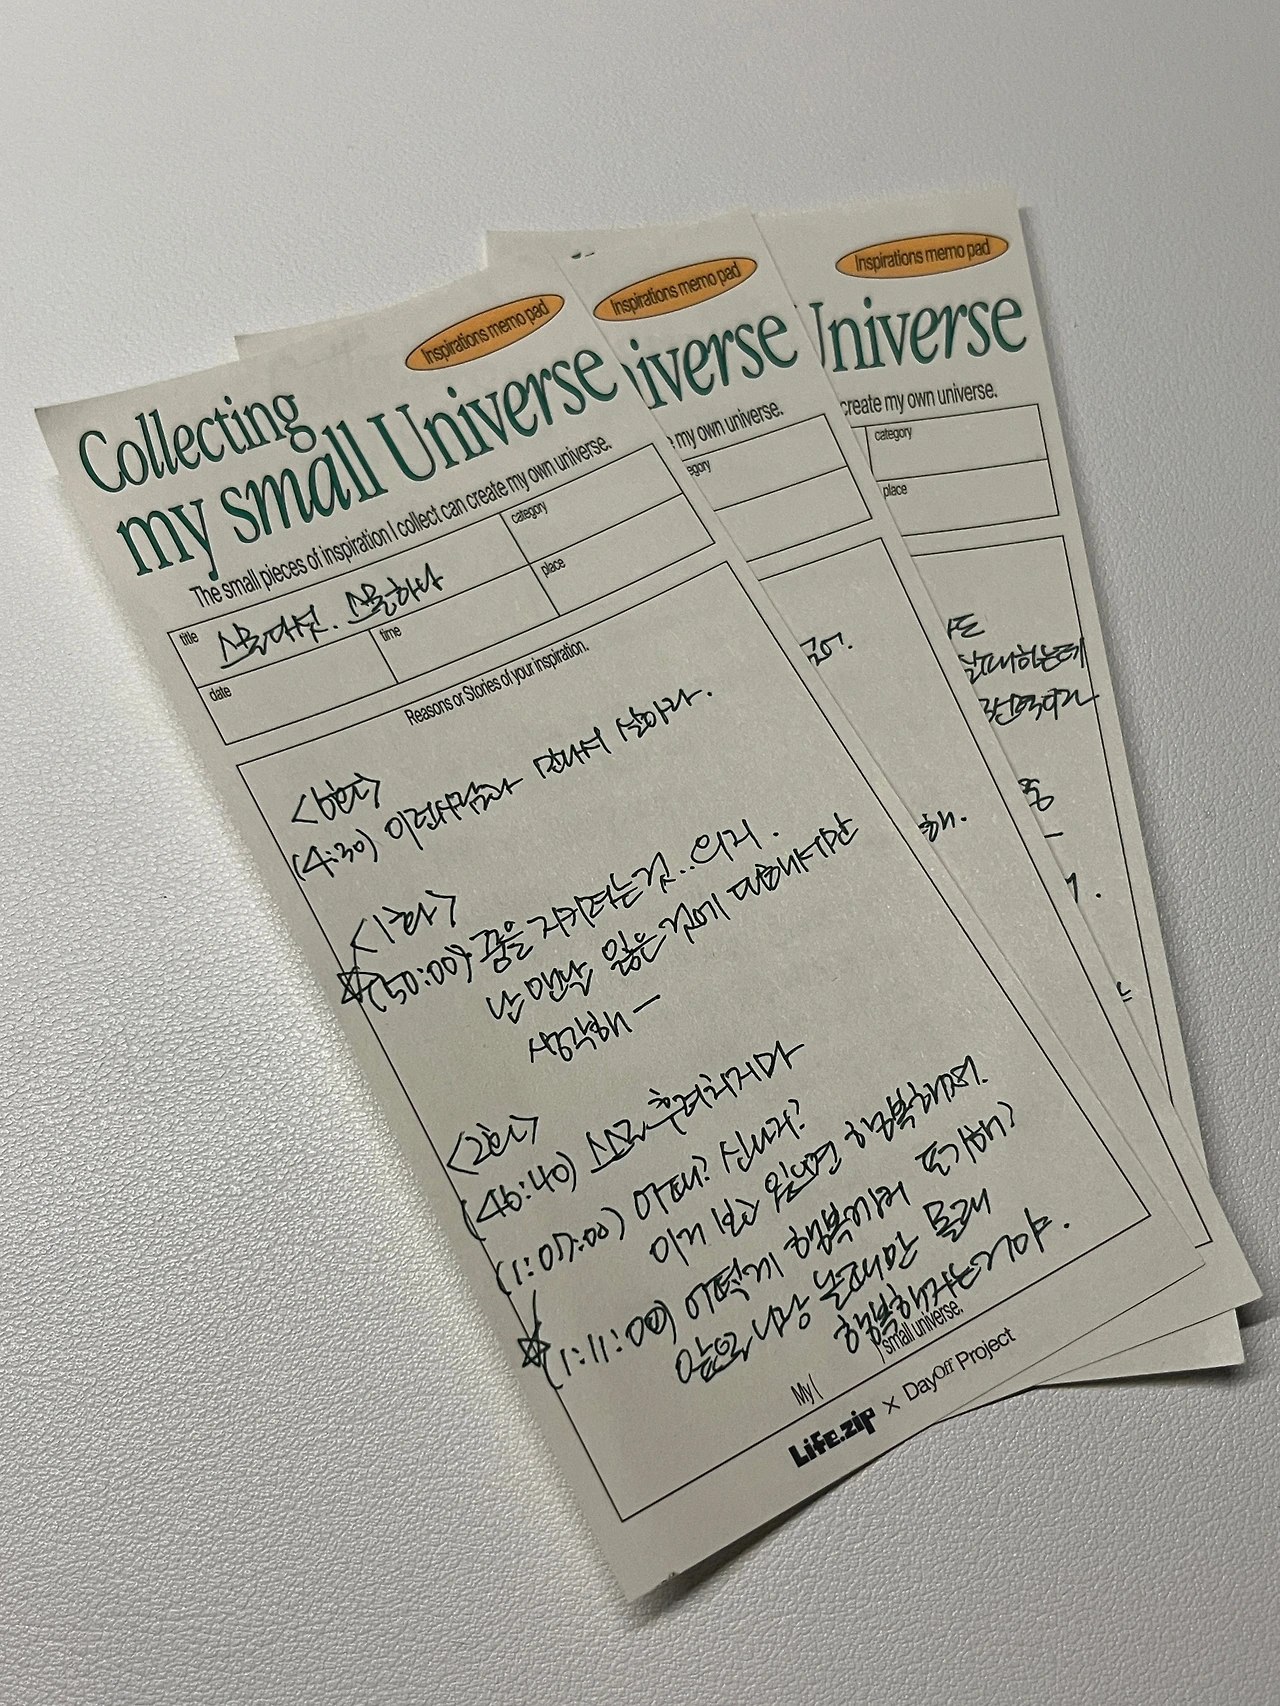 Inspirations memo pad
Collecting
my small Universe
The small pieces of inspiration I collect can create my own universe.
title 스물다섯. 스물하나
category
date
time
place
Reasons or Stories of your inspiration.
<6화>
(4:30) 이런사람과 만나서 살아라.
<1화>
☆(50:00) 꿈을 지키려는 것.. 의지.
난 맨날 잃은 것에 대해서만
생각해 ー
<2화>
(46:40) 스스로 후려치지마
(1:07:00) 어때? 신나지?
이거 보고 웃으면 행복해져.
☆(1:11:00) 어떻게 행복까지 포기해?
앞으로 나랑 놀때만 몰래
행복해지는거야.
My ( ) small universe.
Life.zip × DayOff Project
Inspirations memo pad
iverse
my own universe.
egory
해.
Inspirations memo pad
Universe
create my own universe.
category
place
하는데